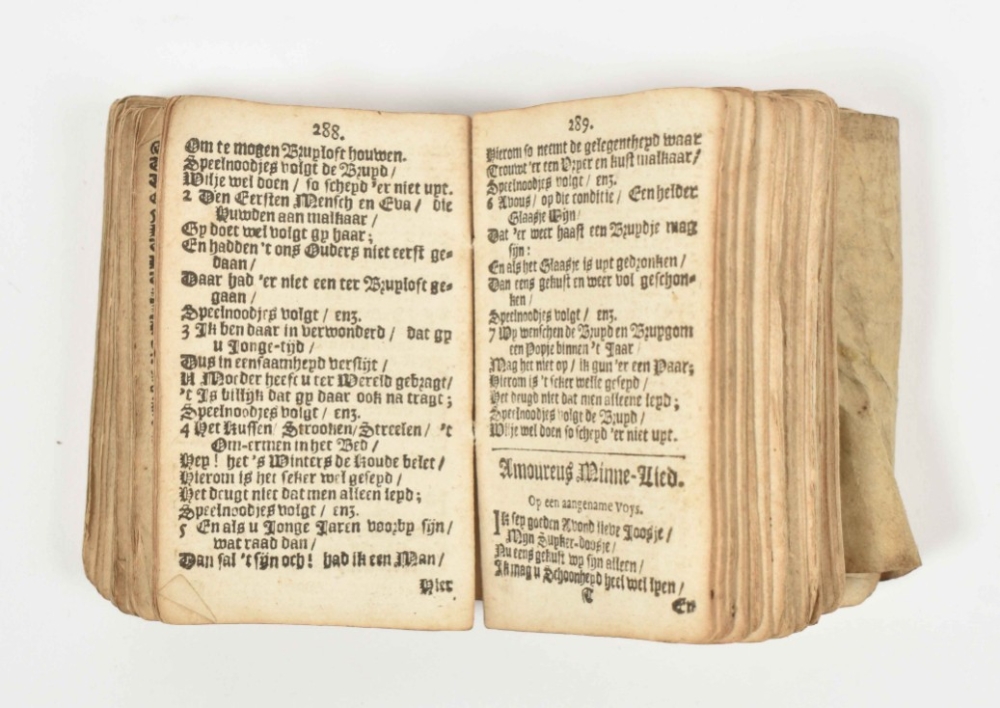 288.
Om te mogen Bruyloft houwen.
Speelnoodjes volgt de Bruyd /
Wilje wel doen / so scheyd 'er niet uyt.
2 Den Eersten Mensch en Eva / die
Huwden aan malkaar /
Gy doet wel volgt gy haar;
En hadden 't ons Ouders niet eerst ge-
daan /
Daar had 'er niet een ter Bruyloft ge-
gaan /
Speelnoodjes volgt / enz.
3 Ik ben daar in verwonderd / dat gy
u Jonge-tijd /
Dus in eensaamheyd verslijt /
U Moeder heeft u ter Wereld gebragt /
't Is billijk dat gy daar ook na tragt;
Speelnoodjes volgt / enz.
4 Het Kussen / Strooken / Streelen / 't
Om-ermen in het Bed /
Hey! het 's Winters de Koude belet /
Hierom is het seker wel geseyd /
Het deugt niet dat men alleen leyd;
Speelnoodjes volgt / enz.
5 En als u Jonge Jaren voorby sijn /
wat raad dan /
Dan sal 't sijn och! had ik een Man /
Hier
289.
Hierom so neemt de gelegentheyd waar
Trouwt 'er een Vryer en kust malkaar /
Speelnoodjes volgt / enz.
6 Avous / op die conditie / Een helder
Glaasje Wijn /
Dat 'er weer haast een Bruydje mag
sijn:
En als het Glaasje is uyt gedronken /
Dan eens gekust en weer vol geschon-
ken /
Speelnoodjes volgt / enz.
7 Wy wenschen de Bruyd en Bruygom
een Popje binnen 't Jaar /
Mag het niet op / ik gun 'er een Paar;
Hierom is 't seker welle geseyd /
Het deugd niet dat men alleene leyd;
Speelnoodjes volgt de Bruyd /
Wilje wel doen so scheyd 'er niet uyt.
Amoureus Minne-Lied.
Op een aangename Voys.
Ik sey goeden Avond lieve Joosje /
Mijn Suyker-doosje /
Nu eens gekust wy sijn alleen /
Ik mag u Schoonheyd heel wel lyen /
En